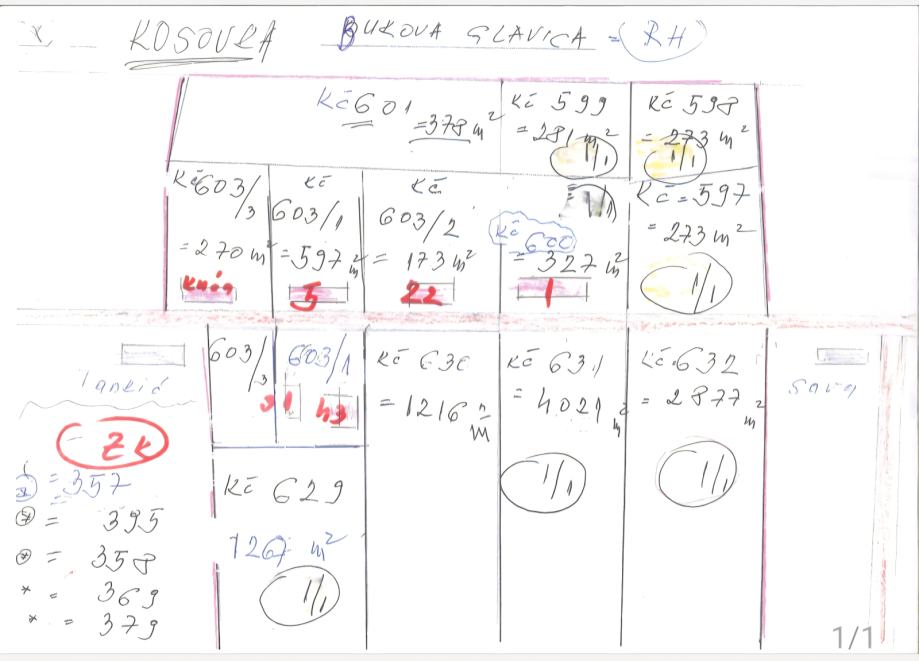 KOSOVKA BUKOVA GLAVICA = RH
Kč 601
= 378 m²
Kč 599
= 281 m²
1/1
Kč 598
= 273 m²
1/1
Kč 603/3
= 270 m²
Kč
603/1
= 597 m²
5
Kč
603/2
= 173 m²
22
1/1
Kč
600
= 327 m²
1
Kč = 597
= 273 m²
1/1
603/3
603/1
31
43
Kč 630
= 1216 m²
Kč 631
= 4021 m²
1/1
Kč 632
= 2877 m²
1/1
Kč 629
1267 m²
1/1
- ZK
= 357
* = 395
* = 358
* = 369
* = 379
Sava
1/1